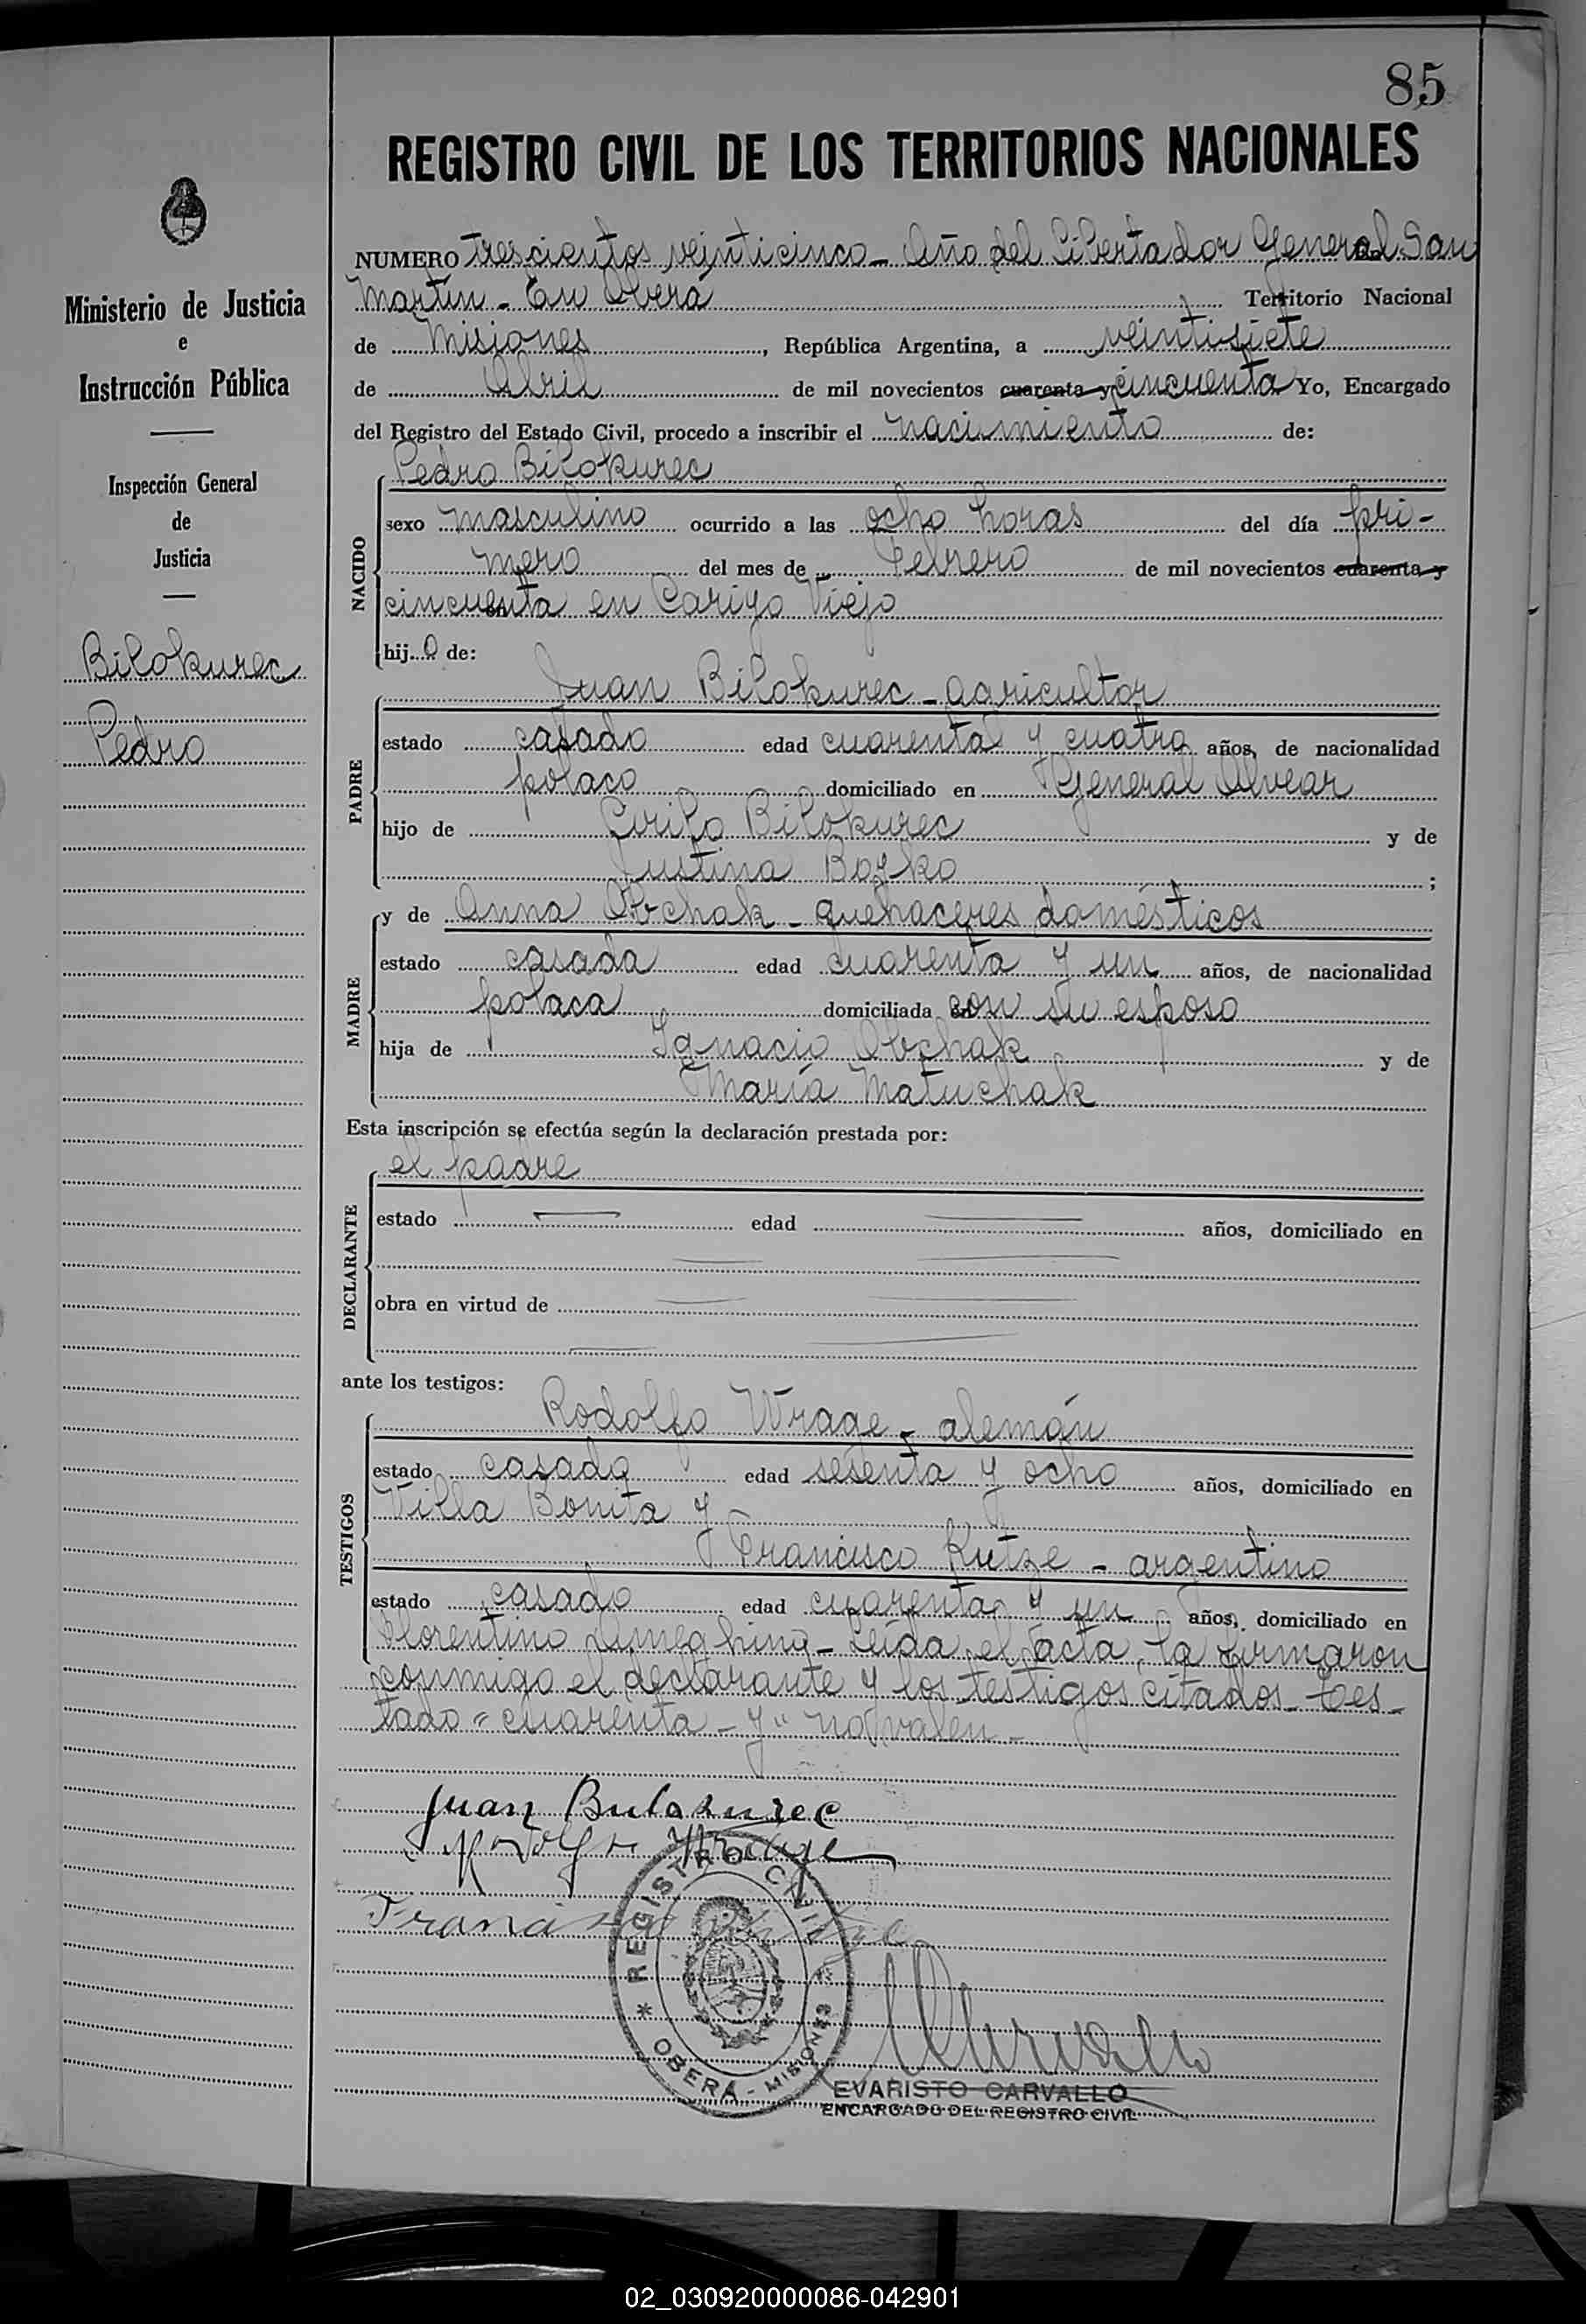 85
REGISTRO CIVIL DE LOS TERRITORIOS NACIONALES
Ministerio de Justicia
e
Instrucción Pública
Inspección General
de
Justicia
Bilokurec
Pedro
NUMERO trescientos veinticinco - Año del Libertador General San
Martín - En Oberá Territorio Nacional
de Misiones, República Argentina, a veintisiete
de Abril de mil novecientos cuarenta y cincuenta Yo, Encargado
del Registro del Estado Civil, procedo a inscribir el nacimiento de:
Pedro Bilokurec
NACIDO
sexo masculino ocurrido a las ocho horas del día pri-
mero del mes de Febrero de mil novecientos cuarenta y
cincuenta en Cariyo Viejo
hijo de:
Juan Bilokurec - agricultor
PADRE
estado casado edad cuarenta y cuatro años, de nacionalidad
polaco domiciliado en General Alvear
hijo de Cirilo Bilokurec y de
Justina Bozko ;
MADRE
y de Anna Obchak - quehaceres domésticos
estado casada edad cuarenta y un años, de nacionalidad
polaca domiciliada con su esposo
hija de Ignacio Obchak y de
María Matuchak
Esta inscripción se efectúa según la declaración prestada por:
el padre
DECLARANTE
estado edad años, domiciliado en
obra en virtud de
ante los testigos:
TESTIGOS
Rodolfo Wrage - alemán
estado casado edad sesenta y ocho años, domiciliado en
Villa Bonita y
Francisco Kutze - argentino
estado casado edad cuarenta y un años, domiciliado en
Florentino Ameghino - Leída el acta, la firmaron
conmigo el declarante y los testigos citados - Tes-
tado "cuarenta - y" no valen -
Juan Bulokurec
Rodolfo Wrage
Francisco Kutze
REGISTRO CIVIL
OBERÁ - MISIONES
EVARISTO CARVALLO
ENCARGADO DEL REGISTRO CIVIL
02_030920000086-042901